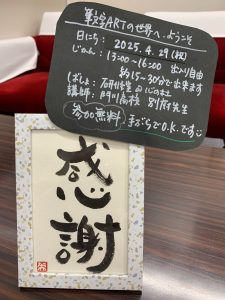 筆文字ARTの世界へようこそ
日にち: 2025.4.29(祝)
じかん: 13:00~16:00 出入り自由
約15~30分で出来ます
ばしょ: 研修室
講師: 門川高校 別府先生
参加無料 手ぶらでO.K.です
感謝